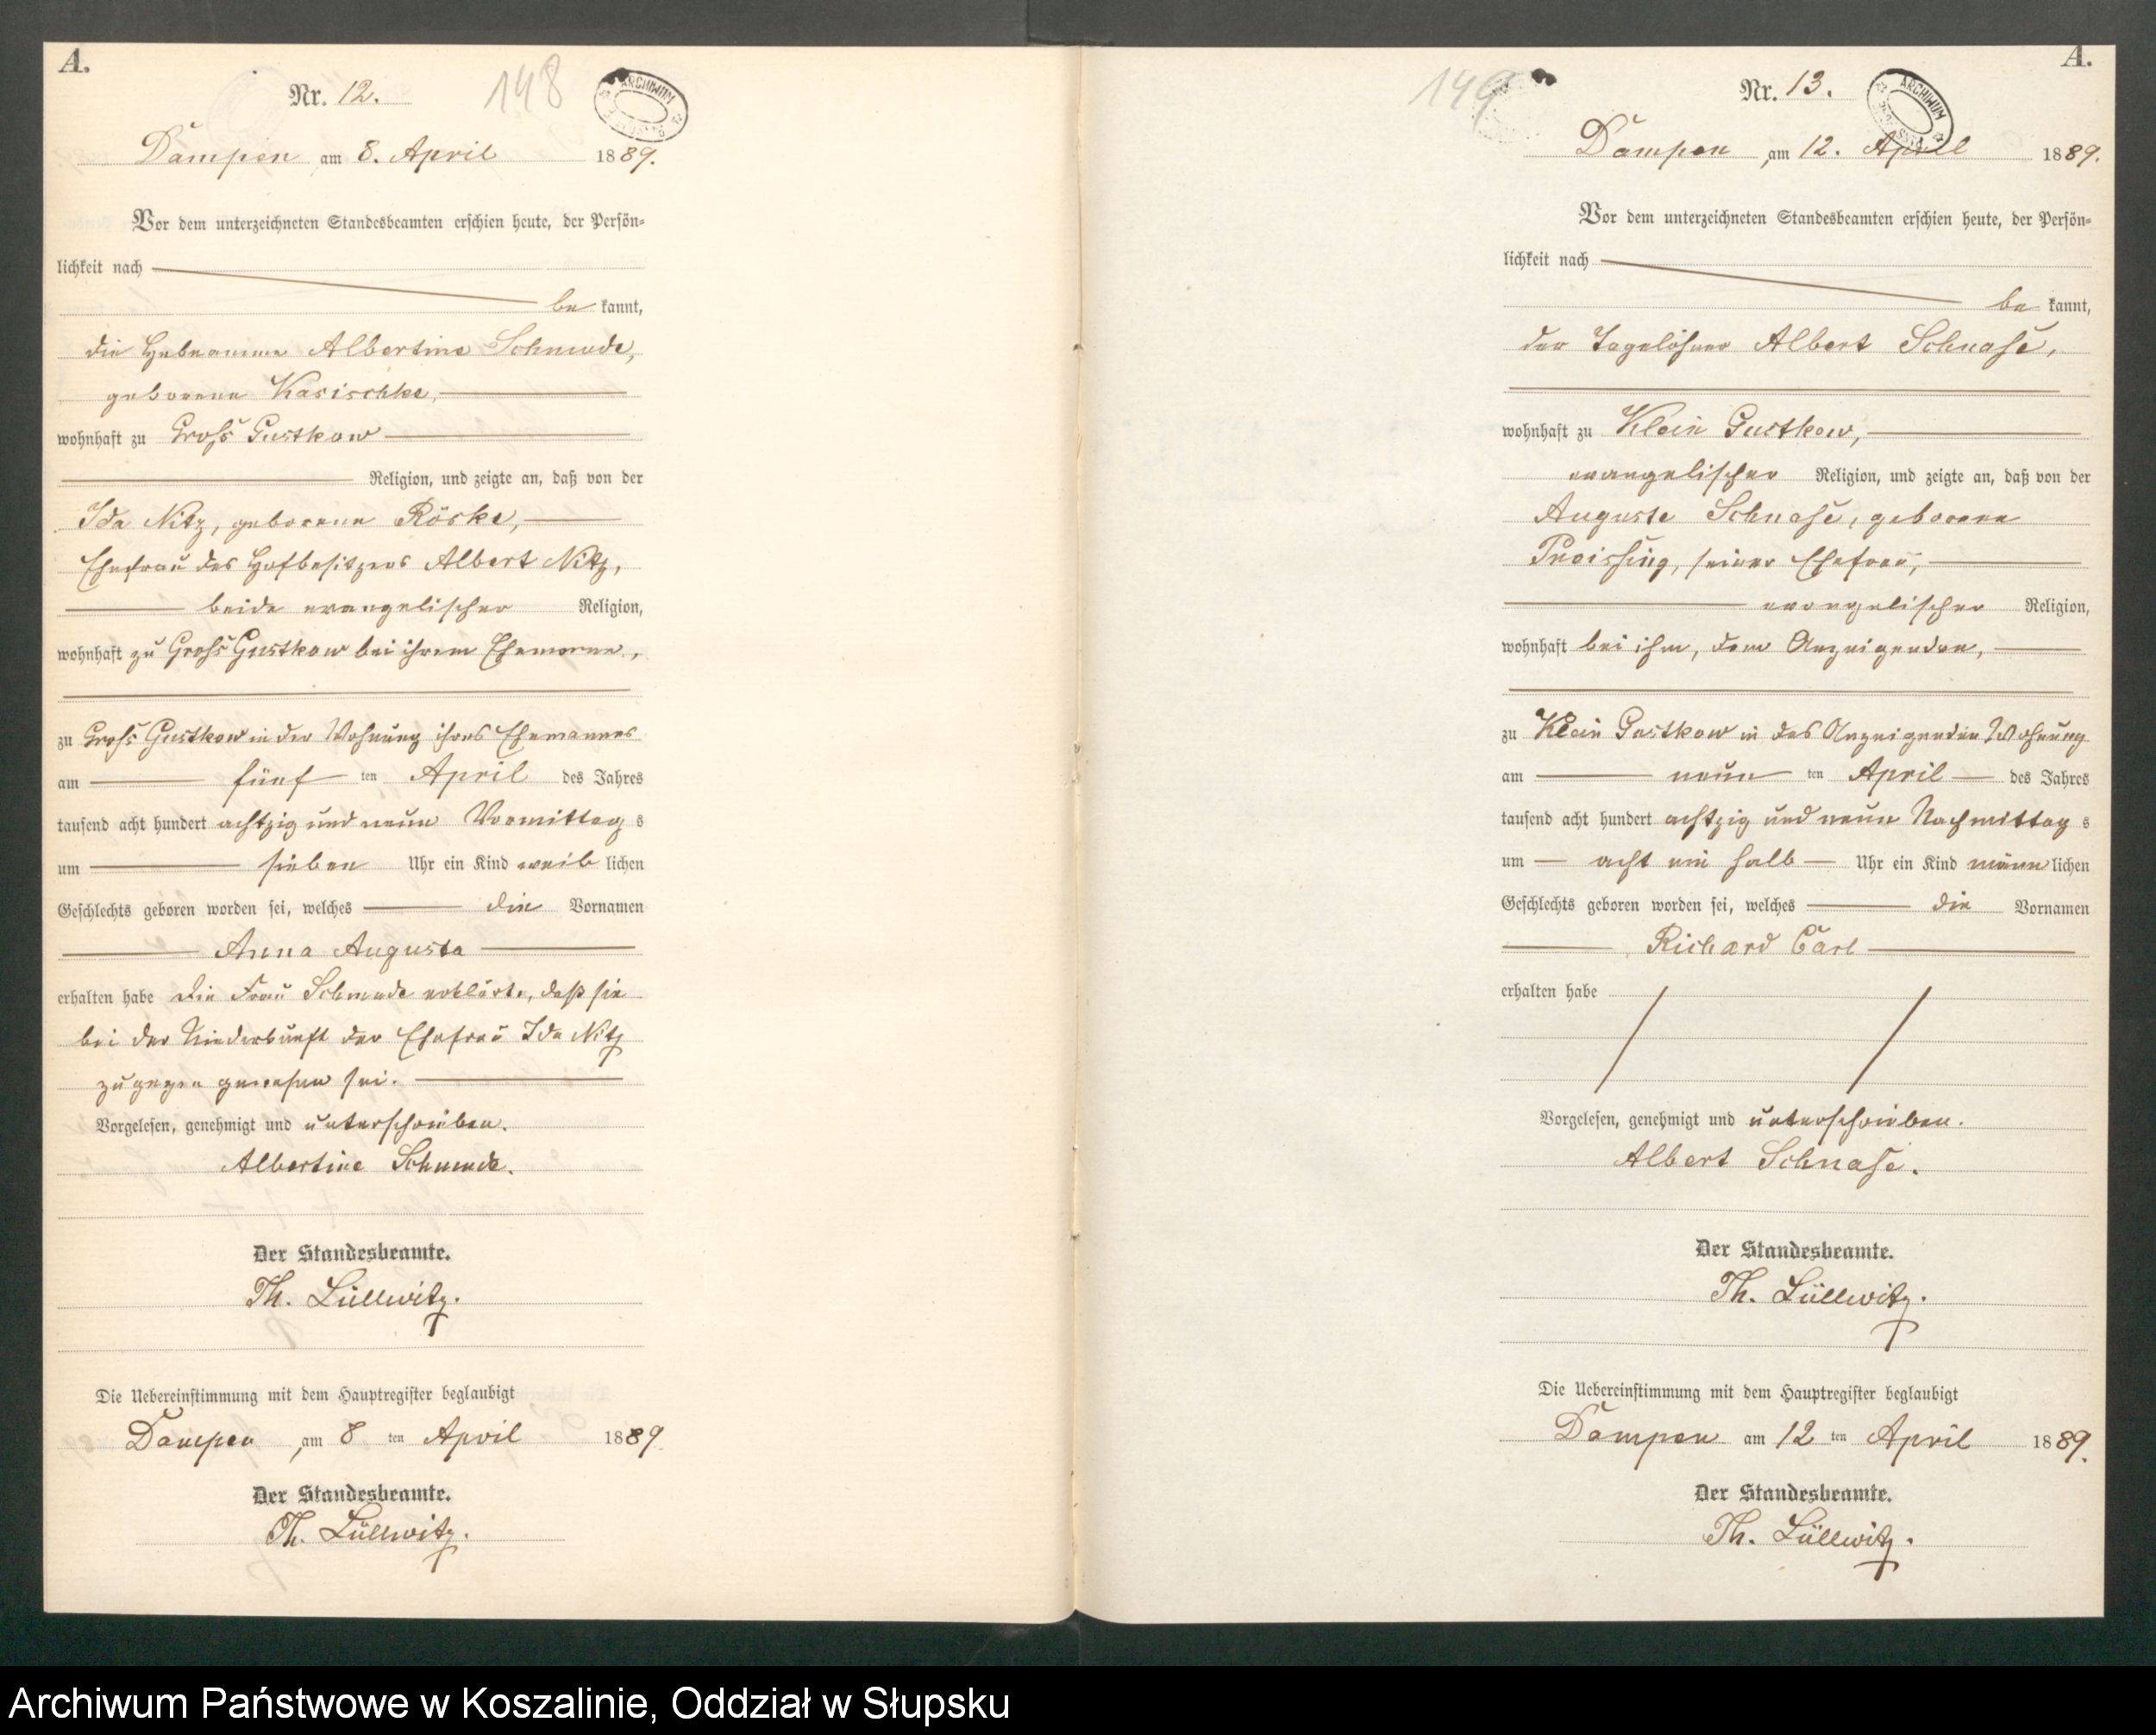 A.
Nr. 12.
148
ARCHIWUM
Dampen am 8. April 1889.
Vor dem unterzeichneten Standesbeamten erschien heute, der Persön=
lichkeit nach
be kannt,
die Hebeamme Albertine Schmude,
geborene Kasischke,
wohnhaft zu Groß Gustkow
Religion, und zeigte an, daß von der
Ida Nitz, geborene Röske,
Ehefrau des Hofbesitzers Albert Nitz,
beide evangelischer Religion,
wohnhaft zu Groß Gustkow bei ihrem Ehemanne,
zu Groß Gustkow in der Wohnung ihres Ehemannes
am fünf ten April des Jahres
tausend acht hundert achtzig und neun Vormittag s
um sieben Uhr ein Kind weib lichen
Geschlechts geboren worden sei, welches die Vornamen
Anna Augusta
erhalten habe Die Frau Schmude erklärte, daß sie
bei der Niederkunft der Ehefrau Ida Nitz
zugegen gewesen sei.
Vorgelesen, genehmigt und unterschrieben.
Albertine Schmude.
Der Standesbeamte.
Th. Lüllwitz.
Die Uebereinstimmung mit dem Hauptregister beglaubigt
Dampen, am 8 ten April 1889
Der Standesbeamte.
Th. Lüllwitz.
A.
Nr. 13.
149
ARCHIWUM
Dampen, am 12. April 1889.
Vor dem unterzeichneten Standesbeamten erschien heute, der Persön=
lichkeit nach
be kannt,
der Tagelöhner Albert Schnase,
wohnhaft zu Klein Gustkow,
evangelischer Religion, und zeigte an, daß von der
Auguste Schnase, geborene
seiner Ehefrau,
evangelischer Religion,
wohnhaft bei ihm, dem Anzeigenden,
zu Klein Gustkow in des Anzeigenden Wohnung
am neun ten April des Jahres
tausend acht hundert achtzig und neun Nachmittag s
um acht ein halb Uhr ein Kind männ lichen
Geschlechts geboren worden sei, welches die Vornamen
Richard Carl
erhalten habe
Vorgelesen, genehmigt und unterschrieben.
Albert Schnase.
Der Standesbeamte.
Th. Lüllwitz.
Die Uebereinstimmung mit dem Hauptregister beglaubigt
Dampen am 12 ten April 1889.
Der Standesbeamte.
Th. Lüllwitz.
Archiwum Państwowe w Koszalinie, Oddział w Słupsku